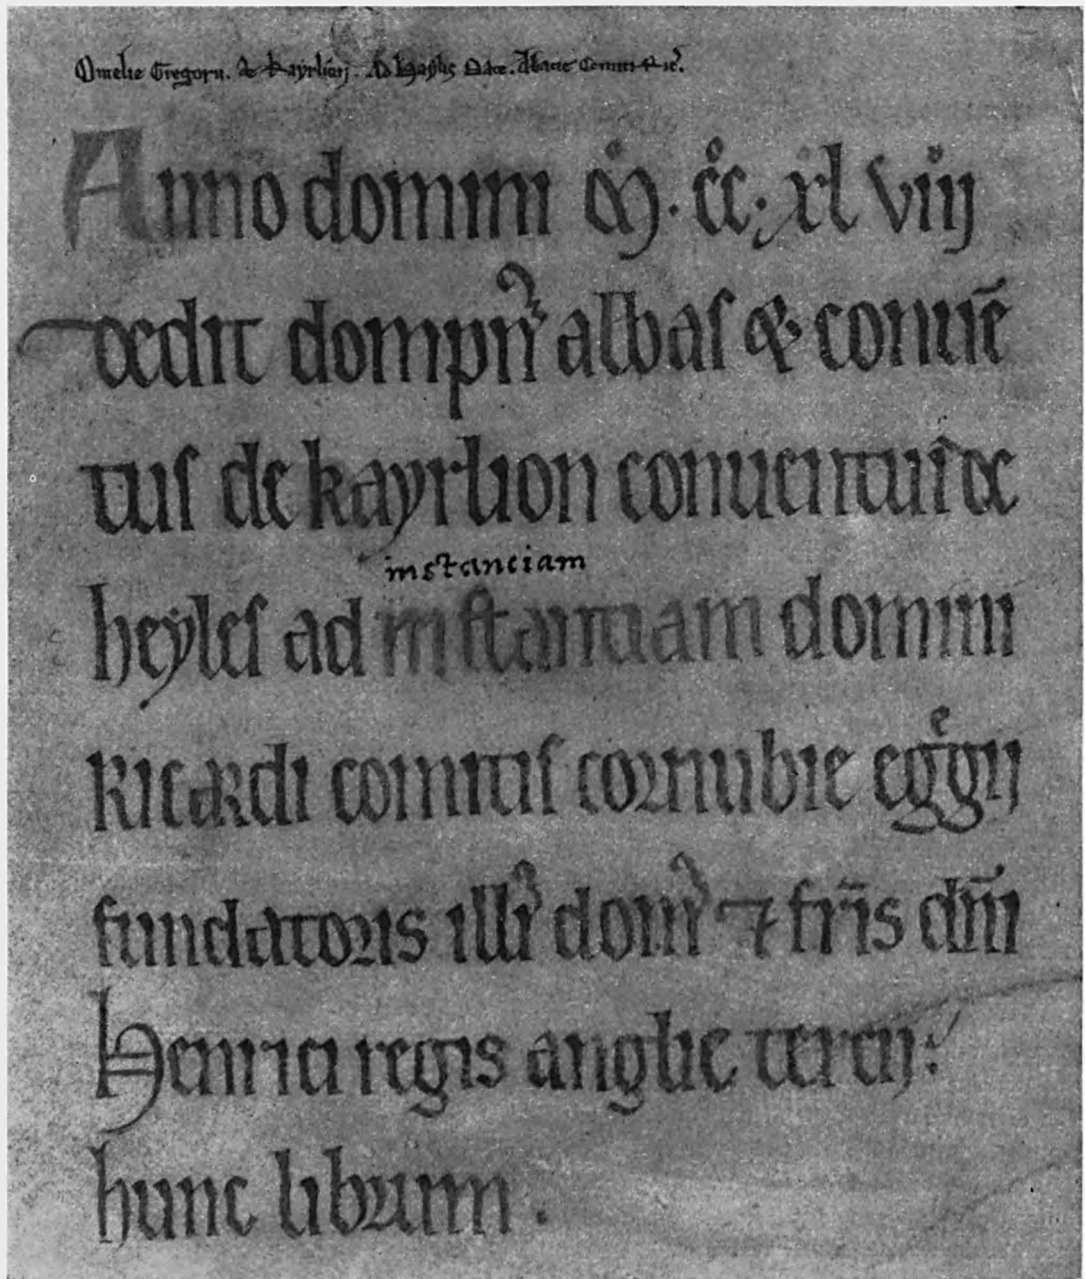 Omelie Gregorii. de kayrlion. Ad Haylis Date.
Anno domini M̊. c̊c̊. xl viij
dedit dompn᾽ abbas & conuē
tus de kayrlion conuentui de
instanciam
heyles ad instantiam domini
Ricardi comitis cornubie egͤgij
fundatoris illi᾽ dom᾽ ⁊ fr̄is dn̄i
Henrici regis anglie tercij:
hunc librum.